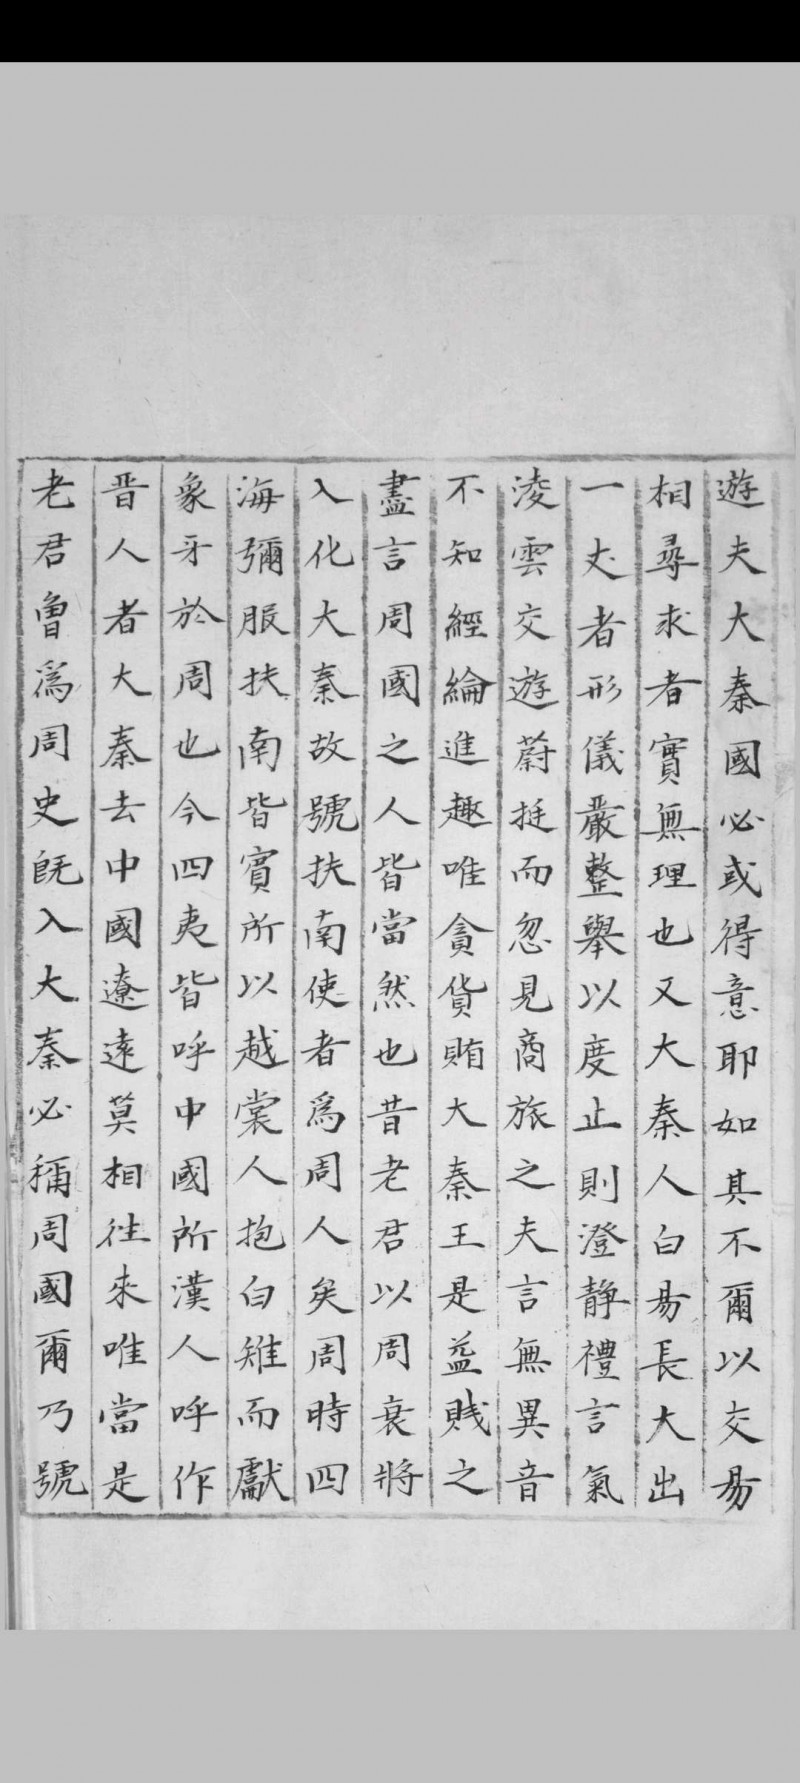 遊夫大秦國必或得意耶如其不爾以交易
相尋求者實無理也又大秦人白易長大出
一丈者形儀嚴整舉以度止則澄靜禮言氣
淩雲交遊蔚挺而忽見商旅之夫言無異音
不知經綸進趣唯貪貨賄大秦王是益賤之
盡言周國之人皆當然也昔老君以周衰將
入化大秦故號扶南使者為周人矣周時四
海彌服扶南皆賓所以越裳人抱白雉而獻
象牙於周也今四夷皆呼中國所漢人呼作
晋人者大秦去中國遼遠莫相往來唯當是
老君曾為周史旣入大秦必稱周國爾乃號